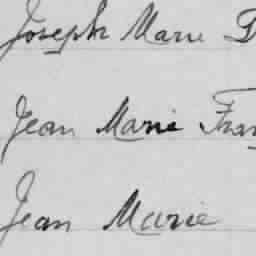 Joseph Marie
Jean Marie
Jean Marie